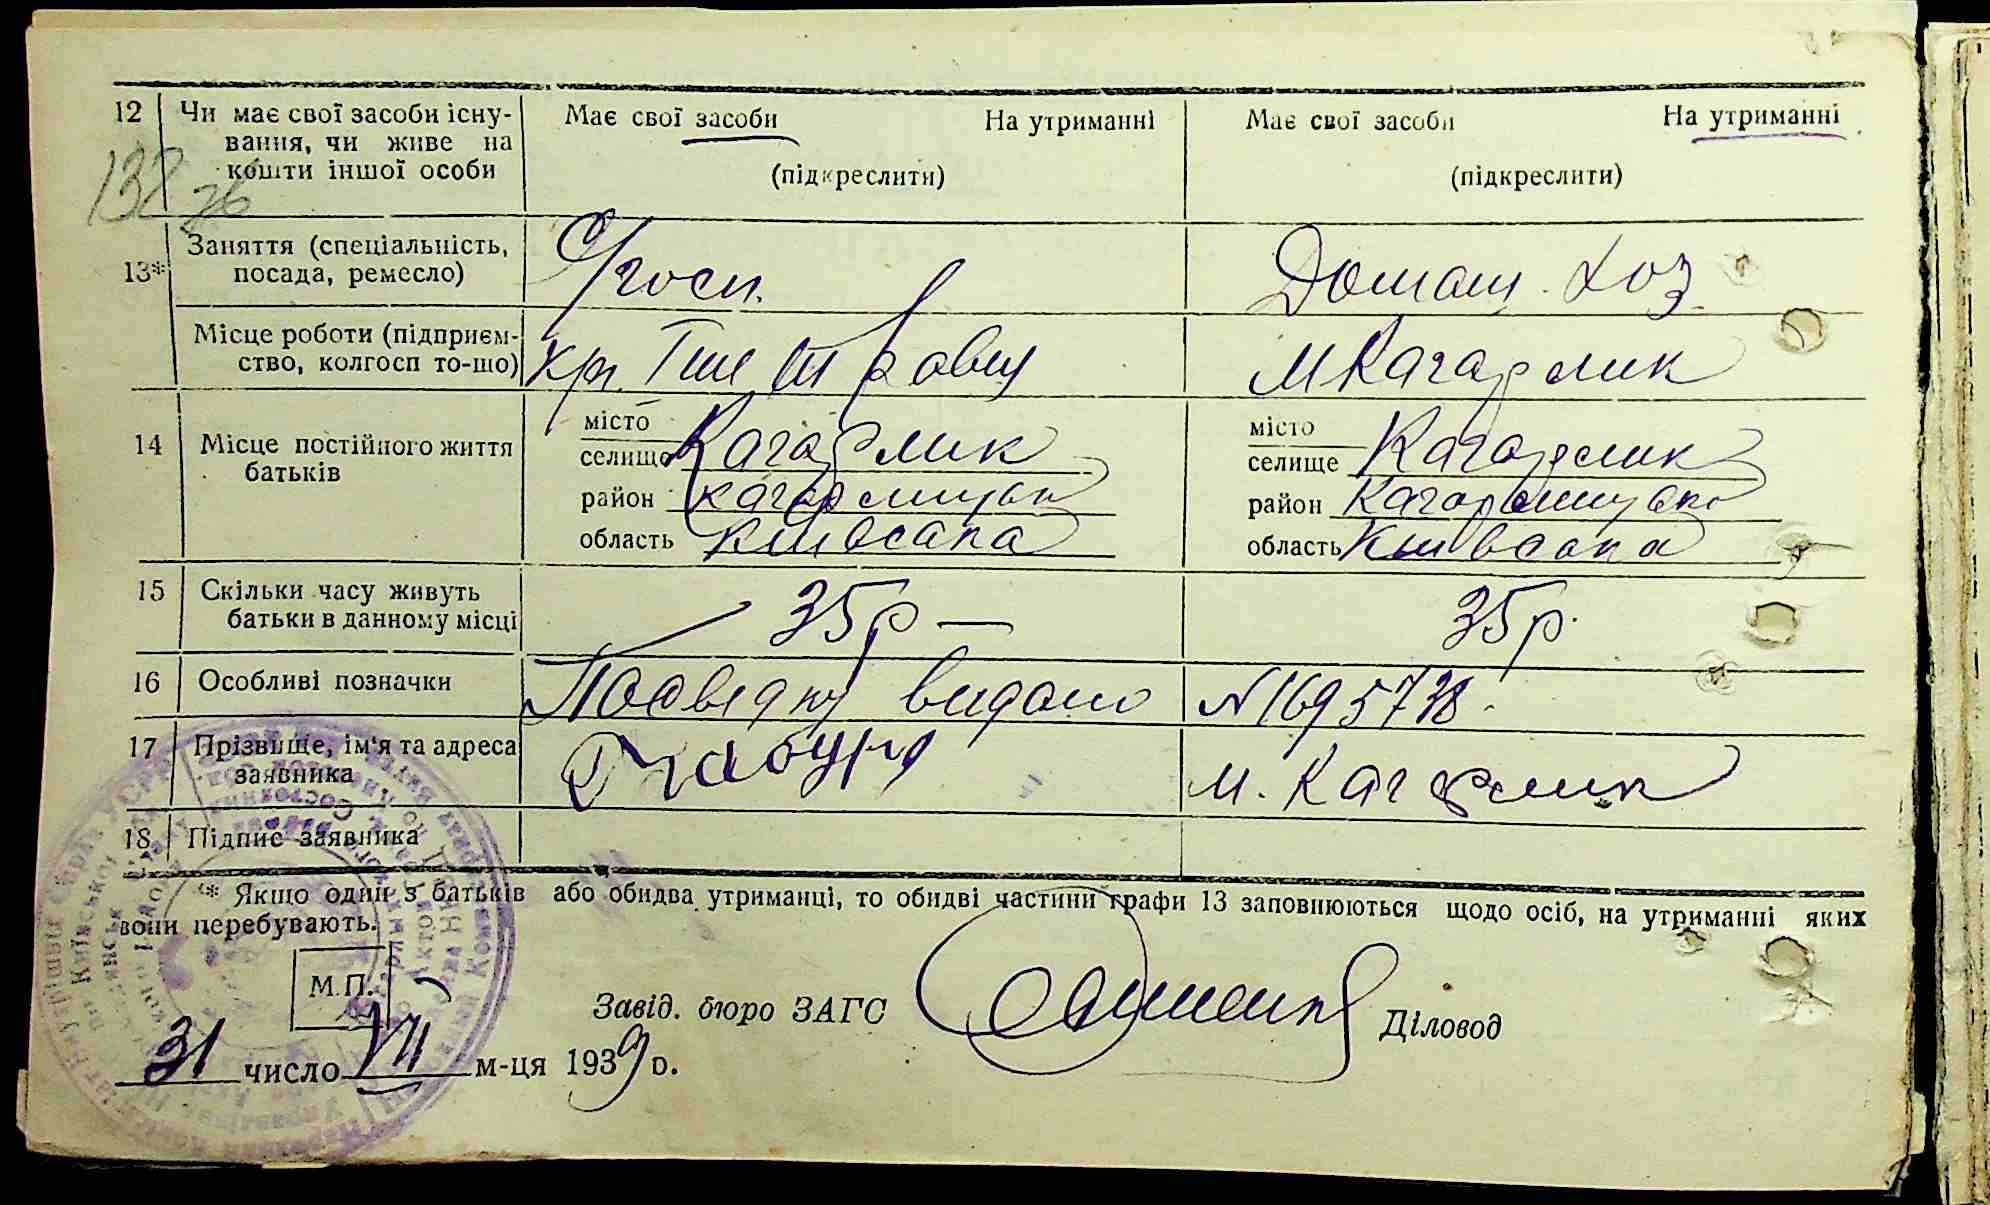 12 Чи має свої засоби існу- Має свої засоби На утриманні Має свої засоби На утриманні
вання, чи живе на
кошти іншої особи (підкреслити) (підкреслити)
132
76
Заняття (спеціальність, С/госп. Домаш. хоз
13* посада, ремесло)
Місце роботи (підприєм- М Кагарлик
ство, колгосп то-що)
14 Місце постійного життя місто Кагарлик місто Кагарлик
батьків селище селище
район Кагарлицьк район Кагарлицько
область Київська область Київська
15 Скільки часу живуть — 35 р — 35 р.
батьки в данному місці
16 Особливі позначки Посвідку видано N 169578.
17 Прізвище, ім'я та адреса м. Кагарлик
заявника
18 Підпис заявника
* Якщо один з батьків або обидва утриманці, то обидві частини графи 13 заповнюються щодо осіб, на утриманні яких
вони перебувають.
М.П.
Завід. бюро ЗАГС Діловод
31 число VII м-ця 1939 р.